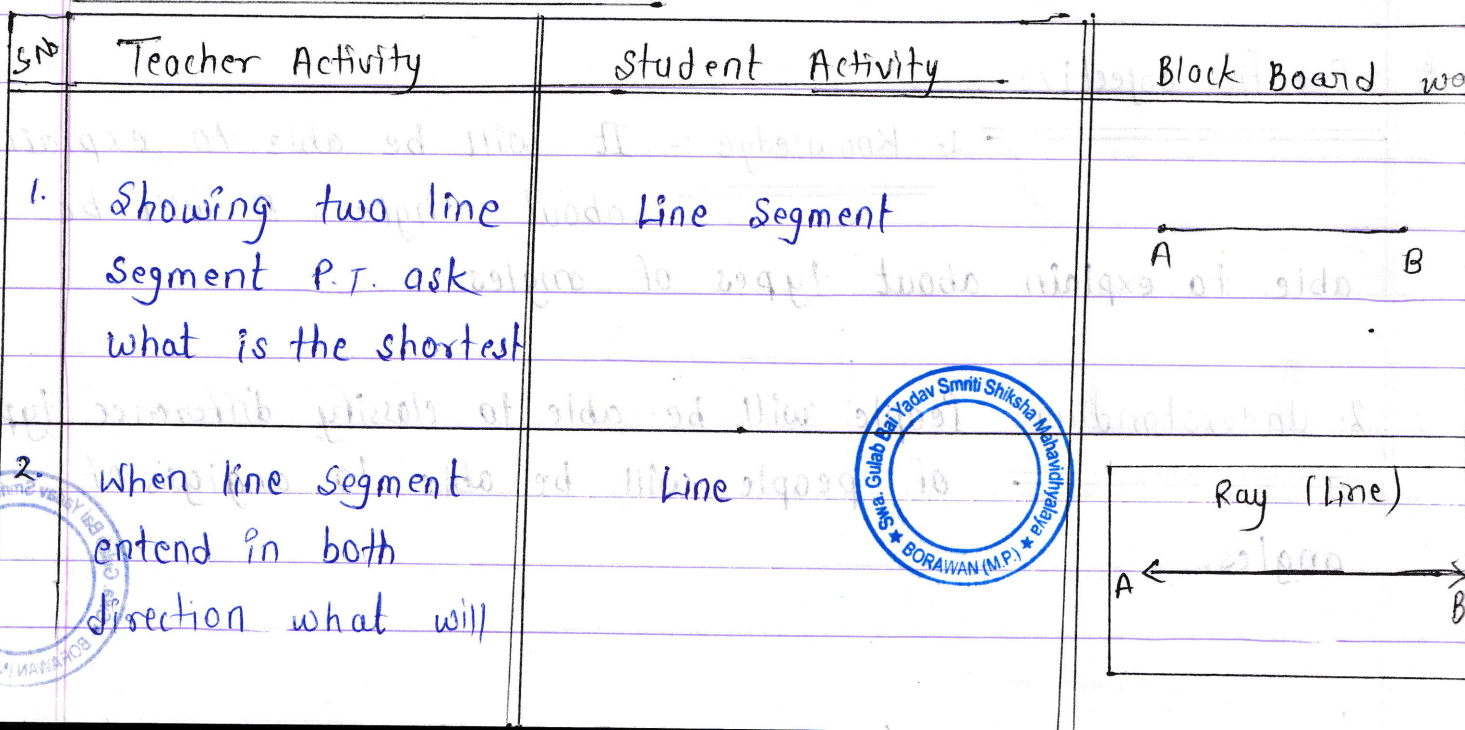 S.No Teacher Activity Student Activity Block Board wo
1. Showing two line Line Segment
Segment P.T. ask
what is the shortest
A B
2. When line Segment Line
entend in both
direction what will
Ray (Line)
A B
Swa. Gulab Bai Yadav Smriti Shiksha Mahavidhyalaya
★ BORAWAN (M.P.) ★